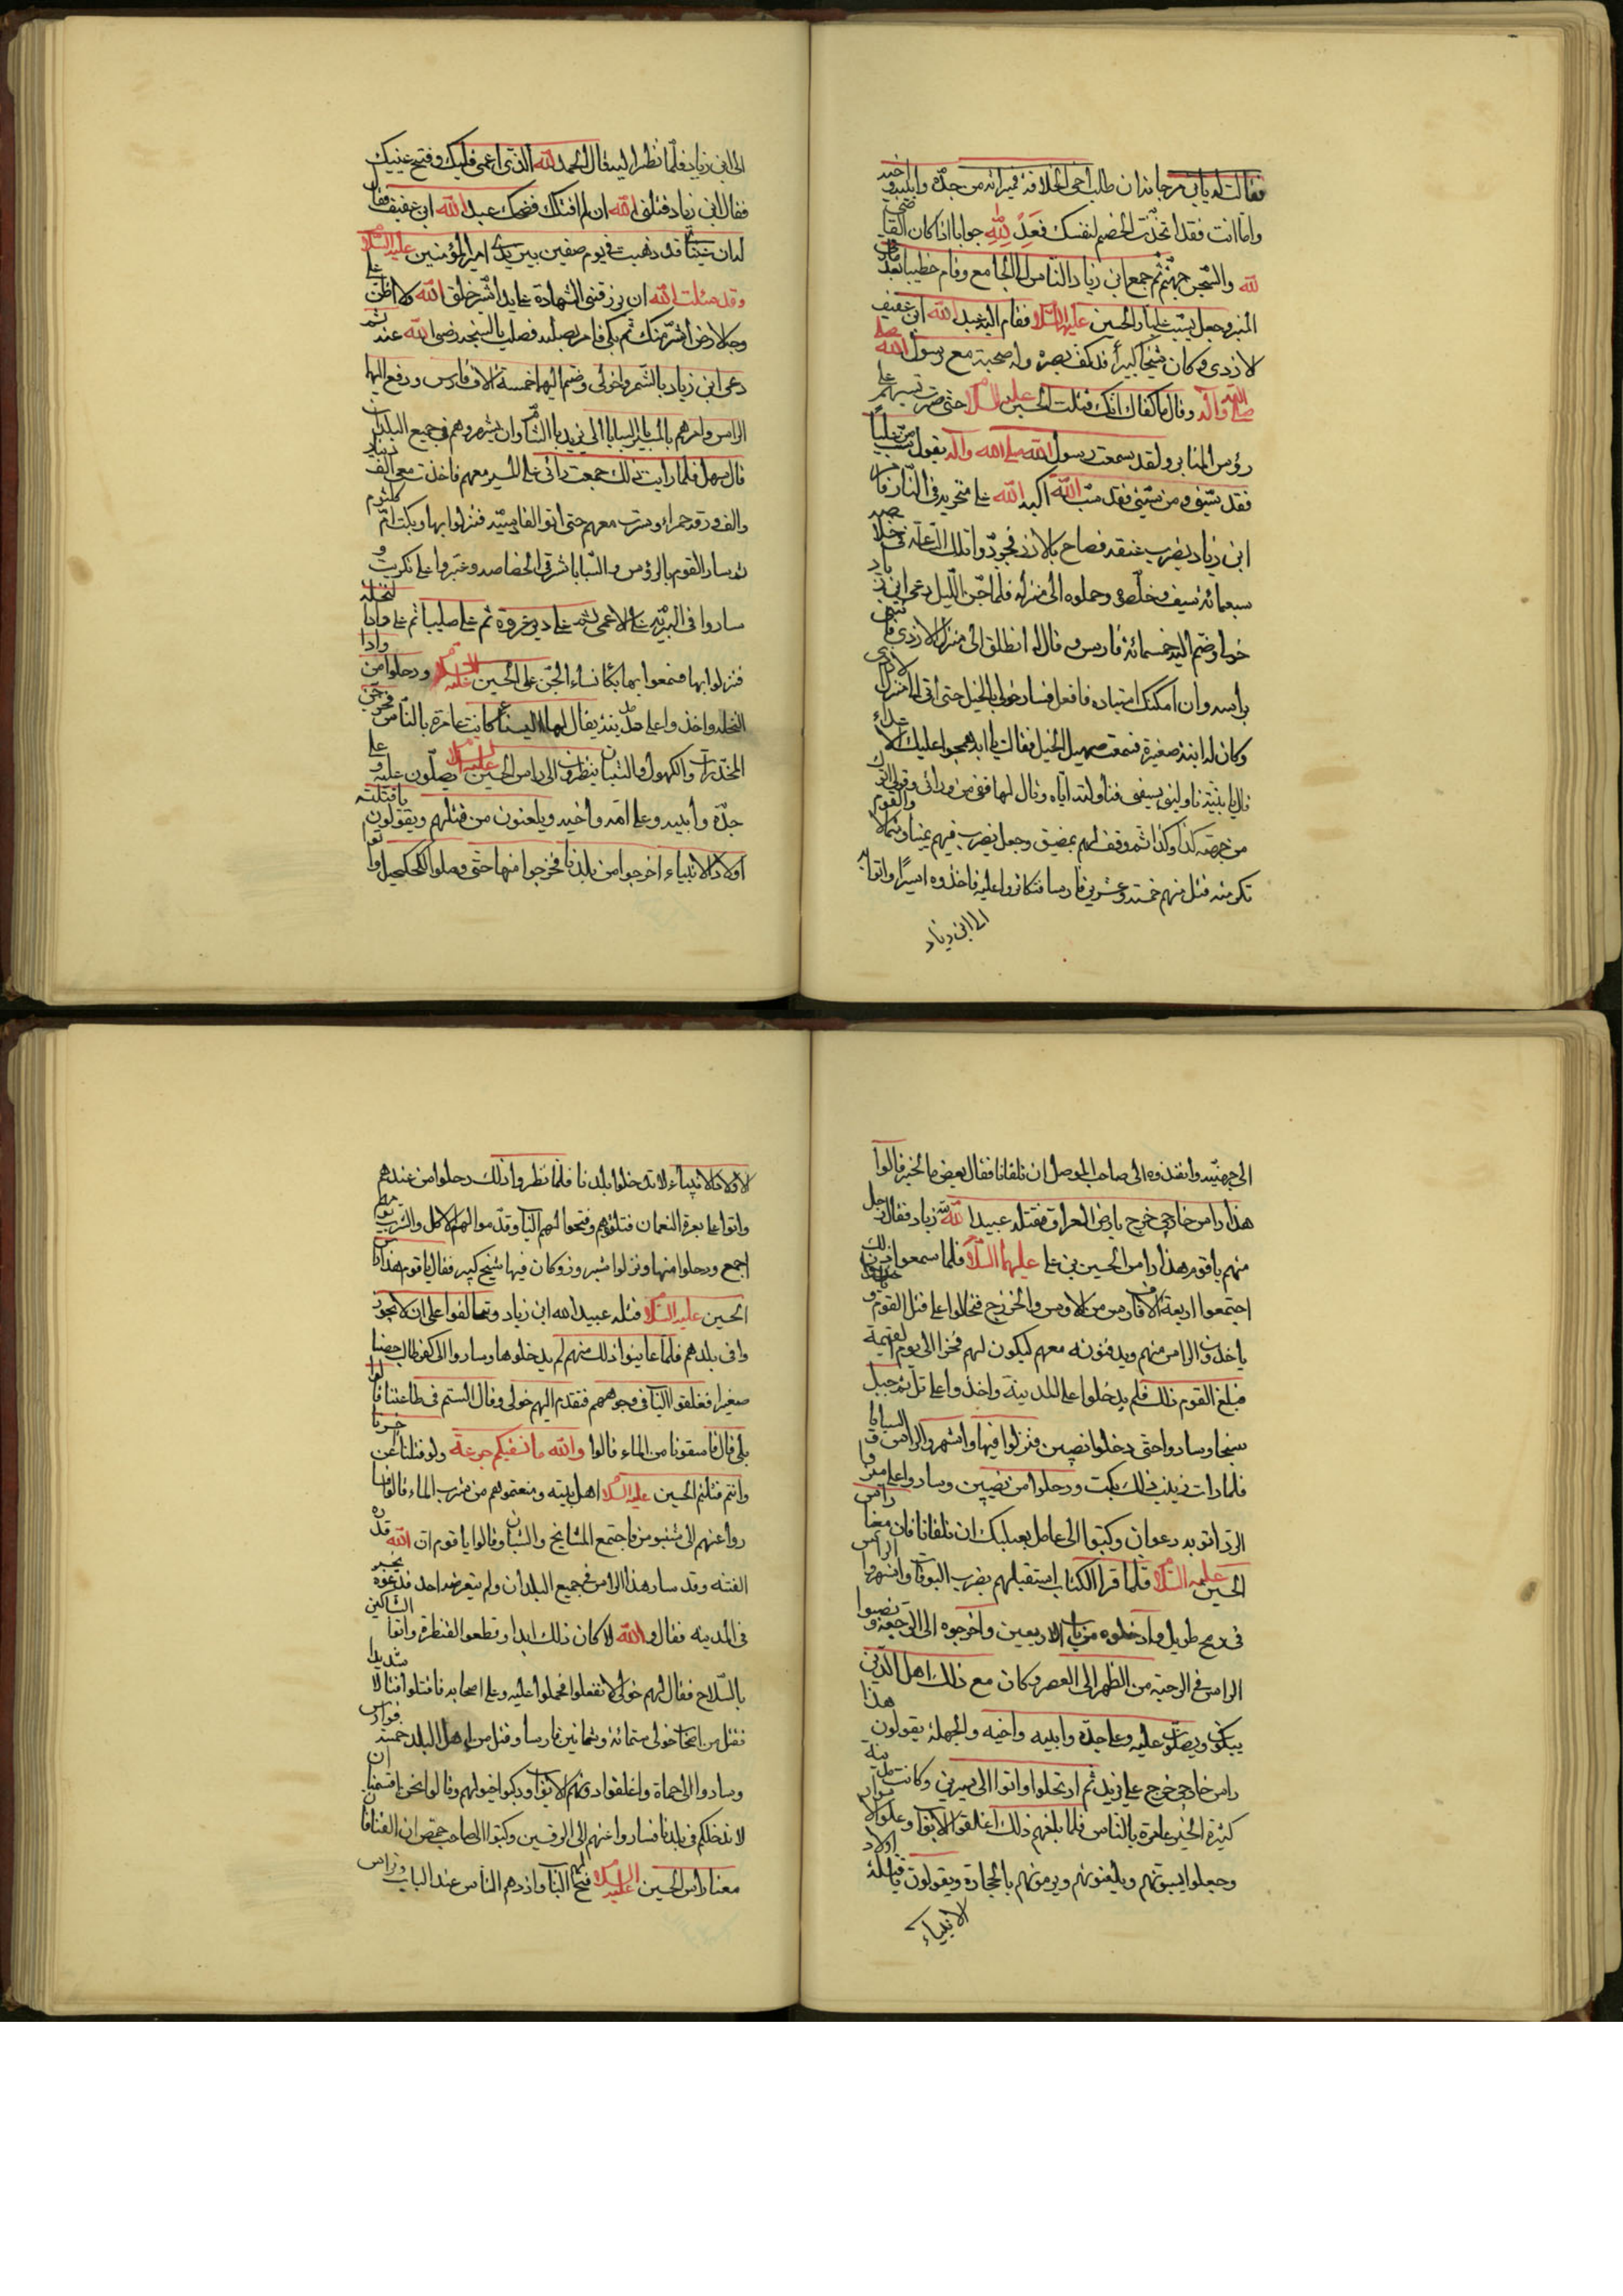 فقالت له يابن مرجانه ان طلب اخى الخلافة فميراثه من جده وابيه واخيه
واما انت فقد اتخذت الخصم لنفسك فعد لله جوابا اذا كان القاضى
لله والسجن جهنم ثم جمع ابن زياد الناس الى الجامع وقام خطيبا فصعد
المنبر وجعل يسب عليا والحسين عليهما السلام فقام اليه عبد الله ابن عفيف
الازدى وكان شيخا كبيرا قد كف بصره وله صحبة مع رسول الله
صلى الله عليه واله وقال ما كفاك انك قتلت الحسين عليه السلام حتى صرت تسبهم على
رؤس المنابر ولقد سمعت رسول الله صلى الله واله يقول من سب عليا
فقد سبنى ومن سبنى فقد سب الله اكبه الله على منخريه فى النار
ابن زياد بضرب عنقه فصاح بالازد
سبعمائة سيف فخلصوه وحملوه الى منزله فلما جن الليل دعى ابن زياد
خولى وضم اليه خمسمائة فارس وقال له انطلق الى منزل الازدى
براسه وان امكنك فافعل فسار خولى بالخيل حتى اتى الى منزل الازدى
وكان له ابنة صغيرة فسمعت صهيل الخيل فقالت يا ابه هجموا عليك الاعداء
قال يا بنية ناولينى سيفى فناولته اياه وقال لها قفى من ورائى وقولى القوم
من جهة كذا وكذا ثم وقف لهم بمضيق وجعل يضرب فيهم يمينا وشمالا
منه قتل منهم خمسة وعشرين فارسا فتكاثروا عليه فاخذوه اسيرا واتوا به
الى ابن زياد
الى ابن زياد فلما نظر اليه قال الحمد لله الذى اعمى قلبك وفتح عينيك
فقال ابن زياد قتلنى الله ان لم اقتلك فضحك عبد الله ابن عفيف فقال
له ان عيناى قد ذهبت فى يوم صفين بين يدى امير المؤمنين عليه السلام
وقد سئلت الله ان يرزقنى الشهادة على يد اشر خلق الله ولا اظن على
وجه الارض اشر منك ثم بكى فامر بصلبه فصلب بالسبخه رضى الله عنه ثم
دعى ابن زياد بالشمر واخولى وضم اليهما خمسة الاف فارس ودفع اليهما
الراس وامرهم بالمسير بالسبايا الى يزيد بالشام وان يشهروهم فى جميع البلدان
قال سهل فلما رايت ذلك جمعت رائى على المسير معهم فاخذت معى الف دينار
والف درهم وسرت معهم حتى اتوا القادسيه فنزلوا بها وبكت ام كلثوم
ثم سار القوم بالرؤس والسبايا شرقى الخصاصه وعبروا على تكريت و
ساروا فى البريه على الاعمى ثم على دير عروه ثم على صليبا ثم على وادى النخله
فنزلوا بها فسمعوا بها بكاء نساء الجن على الحسين عليه السلام ورحلوا من وادى
النخله واخذوا على مدينة يقال لها لينا كانت عامرة بالناس فخرجن
المخدرات والكهول والشبان ينظرون الى راس الحسين عليه السلام ويصلون عليه وعلى
جده وابيه وعلى امه واخيه ويلعنون من قتلهم ويقولون يا قتلة
اولاد الانبياء اخرجوا من بلدنا فخرجوا منها حتى وصلوا الكحيل
الى جهينه وانفذوه الى صاحب الموصل ان تلقانا فقال بعض ما الخبر قالوا
هذا راس خارجى خرج بارض العراق فقتله عبيد الله بن زياد فقال رجل
منهم يا قوم هذا راس الحسين بن على عليهما السلام فلما سمعوا ذلك
اجتمعوا اربعة الاف فارس من الاوس والخزرج فتحالفوا على قتل القوم و
ياخذون الراس منهم ويدفنونه معهم ليكون لهم فخرا الى يوم القيمة
فبلغ القوم ذلك فلم يدخلوا على المدينة واخذوا على تل ثم جبل
سنجار وساروا حتى دخلوا نصيبين فنزلوا فيها واشهروا الراس و السبايا
فلما رات زينب ذلك بكت ورحلوا من نصيبين وساروا على
وكتبوا الى عامل بعلبك ان تلقانا فان معنا راس
الحسين عليه السلام فلما قرا الكتاب استقبلهم بضرب البوقات واشهروا الراس
فى رمح طويل وادخلوه من باب الاربعين واخرجوه الى الرحبه ونصبوا
الراس فى الرحبه من الظهر الى العصر وكان مع ذلك اهل الدين
يبكون ويصلون عليه وعلى جده وابيه واخيه والجهلة يقولون هذا
راس خارجى خرج على يزيد ثم ارتحلوا واتوا الى وكانت مدينة
كثيرة الخير عامرة بالناس فلما بلغهم ذلك اغلقوا الابواب وعلوا الاسوار
وجعلوا يسبونهم ويلعنونهم ويرمونهم بالحجارة ويقولون يا قتلة اولاد
الانبياء
الاولاد الانبياء لا تدخلوا بلدنا فلما نظروا ذلك رحلوا من عندهم
واتوا على معرة النعمان فتلقوهم وفتحوا لهم الباب وقدموا لهم الاكل والشرب
اجمع ورحلوا منها ونزلوا شيروز وكان فيها شيخ كبير فقال يا قوم هذا راس
الحسين عليه السلام قتله عبيد الله ابن زياد وتحالفوا على ان لا يجوز
وا فى بلدهم فلما عاينوا ذلك منهم لم يدخلوها وساروا الى كفرطاب حصنا
صغيرا فغلقوا الباب فى وجوههم فتقدم اليهم خولى وقال الستم فى طاعتنا قالوا
بلى قال فاسقونا من الماء قالوا والله ما نسقيكم جرعة ولو قتلنا عن
وانتم قتلتم الحسين عليه السلام اهل بيته ومنعتموهم من شرب الماء
عنهم الى شيبور فاجتمع المشايخ والشبان وقالوا يا قوم ان الله كره
الفتنه وقد سار هذا الراس فى جميع البلدان ولم يتعرضه احد فدعوه يجوز
فى المدينه فقال الشاكين والله لا كان ذلك ابدا وقطعوا القنطره واتوا
بالسلاح فقال لهم خولى لا تفعلوا فحملوا عليه وعلى اصحابه فاقتلوا قتالا شديدا
فقتل من اصحاب خولى ستمائة وثمانين فارسا وقتل من اهل البلد خمسة فوارس
وساروا الى حماة واغلقوا دونهم الابواب وركبوا خيولهم وقالوا نحن اقسمنا ان
لا ندخلكم فى بلدنا فساروا عنهم الى الرقين وكتبوا الى صاحب حمص ان القنا فان
معنا رأس الحسين عليه السلام فتح لهم الباب وازدهم الناس عند الباب